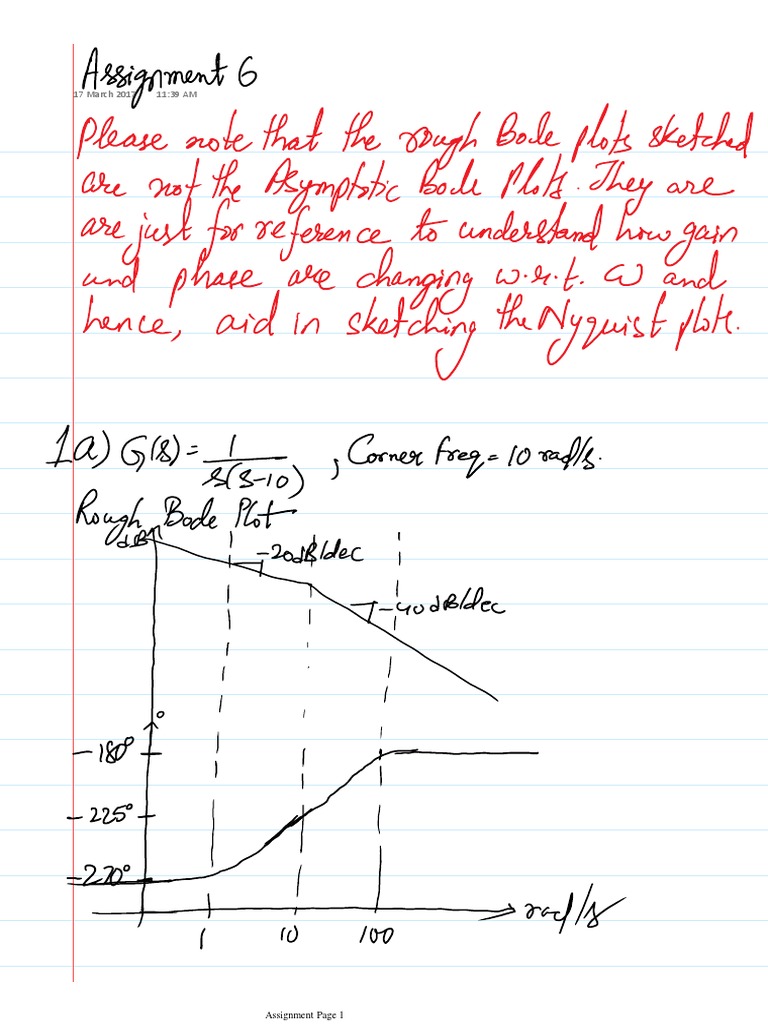 Assignment 6
17 March 2017 11:39 AM
Please note that the rough Bode plots sketched
are not the Asymptotic Bode Plots. They are
are just for reference to understand how gain
and phase are changing w.r.t. ω and
hence, aid in sketching the Nyquist plots.
1a) G(s) = 1 / s(s-10) , Corner freq = 10 rad/s.
Rough Bode Plot
dB
-20dB/dec
-40dB/dec
°
-180°
-225°
-270°
rad/s
1 10 100
Assignment Page 1